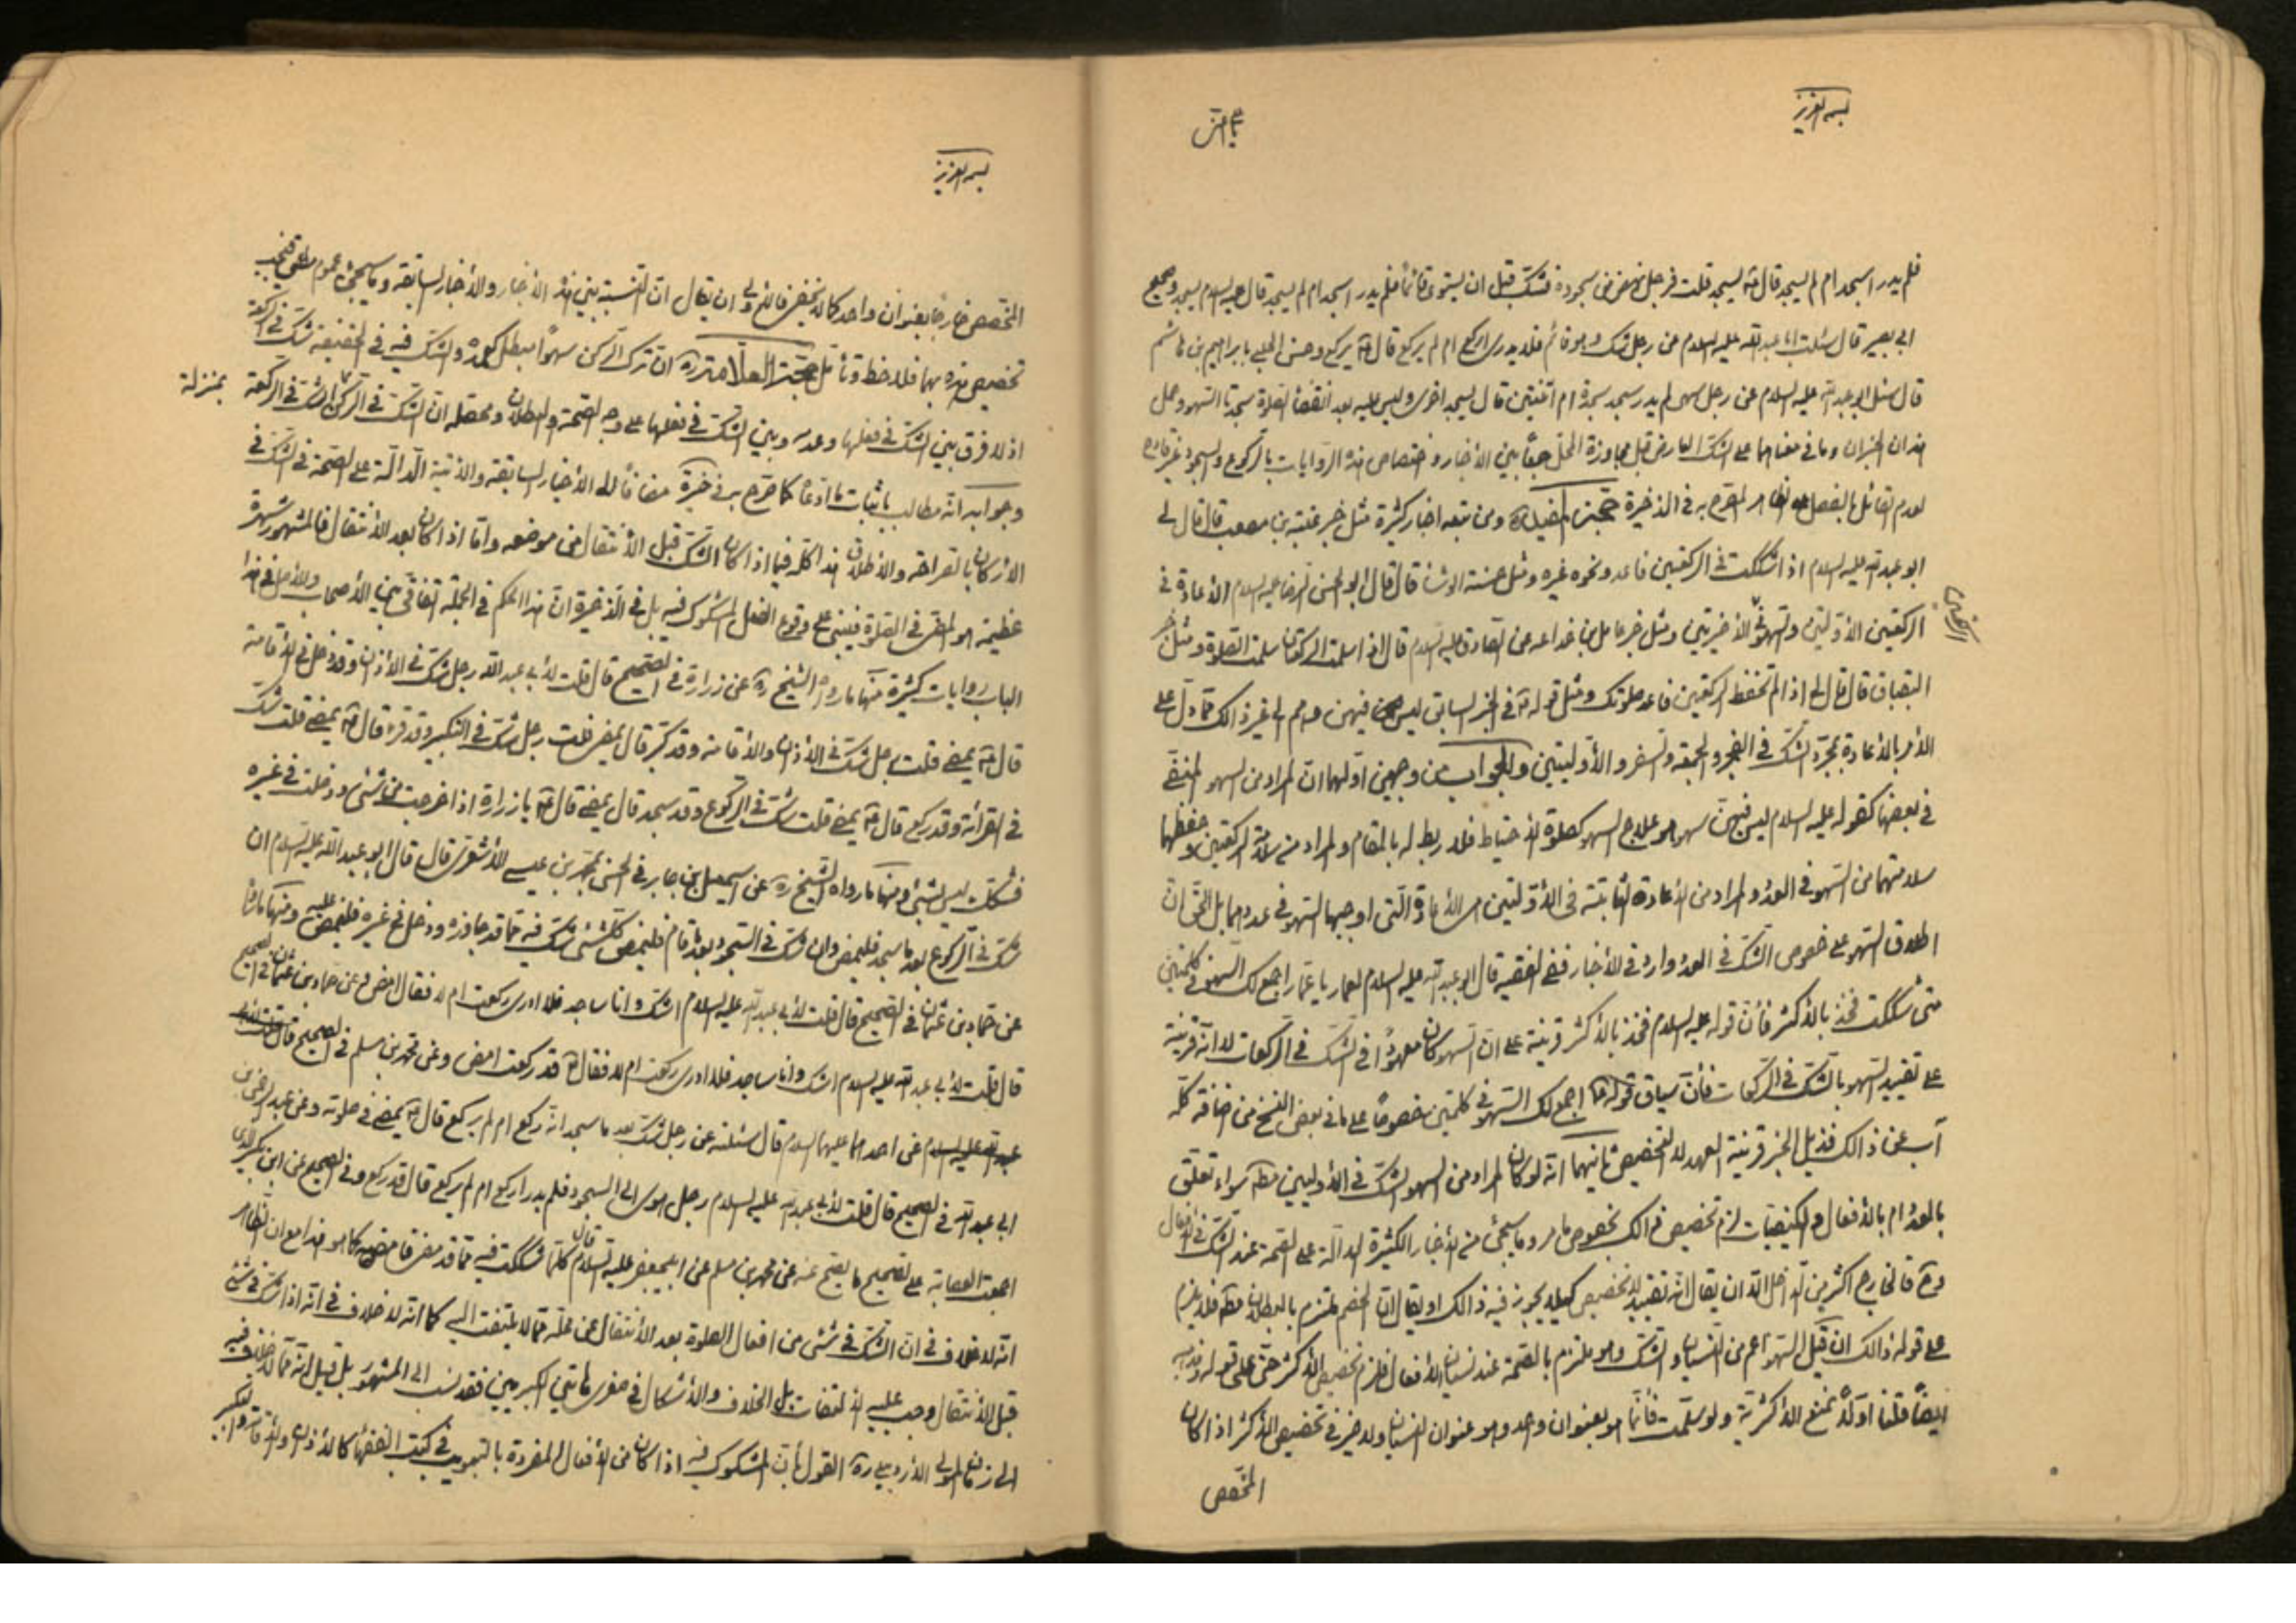 بسمه العزيز
فلم يدر اسجد ام لم يسجد قال ع يسجد قلت فرجل نهض من سجوده فشك قبل ان يستوى قائما فلم يدر اسجد ام لم يسجد قال عليه السلام يسجد وصحيح
ابى بصير قال سئلت ابا عبد الله عليه السلام عن رجل شك وهو قائم فلا يدرى اركع ام لم يركع قال ع يركع وحسن الحلبى بابراهيم بن هاشم
قال سئل ابو عبد الله عليه السلام عن رجل سهى لم يدر سجد سجدة ام اثنتين قال يسجد اخرى وليس عليه بعد انقضاء الصلوة سجدتا السهو وحمل
هذان الخبران وما فى معناهما على الشك العارض قبل مجاوزة المحل جمعًا بين الأخبار واختصاص هذه الروايات بالركوع والسجود غير قادح
لعدم القائل بالفصل المصرح به فى الذخيرة حجة المفيد ره ومن تبعه اخبار كثيرة مثل خبر عنبسة بن مصعب قال قال لى
ابو عبد الله عليه السلام اذا شككت فى الركعتين فاعد ونحوه غيره ومثل حسنة الوشاء قال قال ابو الحسن الرضا عليه السلام الأعادة فى
الركعتين الأولتين والسهو فى الأخيرتين ومثل خبر عامل بن خداعه عن الصادق عليه السلام قال اذا سلمت الركعتان سلمت الصلوة ومثل خبر
البقباق قال قال لى اذا لم تحفظ الركعتين فاعد صلوتك ومثل قوله ع فى الخبر السابق ليس فيهن وهم الى غير ذالك مما دل على
الأمر بالأعادة بمجرد الشك فى الفجر والجمعة والسفر والأولتين والجواب من وجهين اولهما ان المراد من السهو المنفى
فى بعضها كقوله عليه السلام ليس فيهن سهو هو علاج السهو كصلوة الأحتياط فلا ربط له بالمقام والمراد من سلامة الركعتين وحفظها
سلامتهما من السهو فى العدد والمراد من الأعادة الثابتة فى الأولتين هى الأعادة التى اوجبها السهو فى عددهما بل الحق ان
اطلاق السهو على خصوص الشك فى العدد وارد فى الأخبار ففى الفقيه قال ابو عبد الله عليه السلام لعمار يا عمار اجمع لك السهو فى كلمتين
متى شككت فخذ بالأكثر فأن قوله عليه السلام فخذ بالأكثر قرينة على ان السهو كان معهودًا فى الشك فى الركعات لا انه قرينة
على تقييد السهو بالشك فى الركعات فأن سياق قوله ع اجمع لك السهو فى كلمتين خصوصًا على ما فى بعض النسخ من اضافة كله
آب عن ذالك فذيل الخبر قرينة العهد لا التخصيص ثانيهما انه لو كان المراد من السهو الشك فى الأوليين مطلقا سواء تعلق
بالعدد ام بالأفعال والكيفيات لزم تخصيص ذالك بخصوص ما مر وما سيجئ من الأخبار الكثيرة الدالة على الصحة عند الشك فى الأفعال
وح فالخارج اكثر من الداخل الا ان يقال انه تقييد لا تخصيص يجوز فيه ذالك او يقال ان الخصم ملتزم بالبطلان مطلقا فلا يلزم
على قوله ذالك ان قيل السهو اعم من النسيان والشك وهو ملتزم بالصحة عند نسيان الأفعال فلزم تخصيص الأكثر حتى على قوله
ايضًا قلنا اولًا نمنع الأكثرية ولو سلمت فأنما هو بعنوان واحد وهو عنوان النسيان ولا ضير فى تخصيص الأكثر اذا كان
المخصص
بسمه العزيز
المخصص خارجًا بعنوان واحد كما لا يخفى فالأولى ان يقال ان النسبة بين هذه الأخبار والأخبار السابقة وما سيجئ عموم مطلق فيجب
تخصيص هذه بها فلاحظ وتأمل حجة العلامة ره ان ترك الركن سهوًا مبطل كعمده والشك فيه فى الحقيقة شك فى الركعة
اذ لا فرق بين الشك فى فعلها وعدمه وبين الشك فى فعلها على وجه الصحة والبطلان ومحصله ان الشك فى الركن الشك فى الركعة بمنزلة
وجوابه انه مطالب بأثبات ما ادعاه كما صرح به فى خيرة مضافًا الى الأخبار السابقة والأتية الدالة على الصحة فى الشك فى
الأركان بالصراحة والأطلاق هذا كله فيما اذا كان الشك قبل الأنتقال من موضعه واما اذا كان بعد الأنتقال فالمشهور شهرة
عظيمة هو المضى فى الصلوة فيبنى على وقوع الفعل المشكوك فيه بل فى الذخيرة ان هذا الحكم فى الجملة اتفاقى بين الأصحاب والأصل فى هذا
الباب روايات كثيرة منها ما رواه الشيخ ره عن زرارة فى الصحيح قال قلت لأبى عبد الله رجل شك فى الأذان وقد دخل فى الأقامة
قال ع يمضى قلت رجل شك فى الأذان والأقامة وقد كبر قال يمضى قلت رجل شك فى التكبير وقد قرء قال ع يمضى قلت شك
فى القرائة وقد ركع قال ع يمضى قلت شك فى الركوع وقد سجد قال يمضى قال ع يا زرارة اذا خرجت من شئ ودخلت فى غيره
فشكك ليس بشئ ومنها ما رواه الشيخ ره عن اسمعيل بن جابر فى الحسن بمحمد بن عيسى الأشعرى قال قال ابو عبد الله عليه السلام ان
شك فى الركوع بعد ما سجد فليمض وان شك فى السجود بعد ما قام فليمض كل شئ شك فيه مما قد جاوزه ودخل فى غيره فليمض عليه ومنها ما رواه
عن حماد بن عثمان فى الصحيح قال قلت لأبى عبد الله عليه السلام اشك وانا ساجد فلا ادرى ركعت ام لا فقال امض وعن حماد بن عثمان فى الصحيح
قال قلت لأبى عبد الله عليه السلام اشك وانا ساجد فلا ادرى ركعت ام لا فقال ع قد ركعت امض وعن محمد بن مسلم فى الصحيح قال
عن احدهما عليهما السلام قال سئلته عن رجل شك بعد ما سجد انه ركع ام لم يركع قال ع يمضى فى صلوته وعن عبد الرحمن بن
ابى عبد الله فى الصحيح قال قلت لأبى عبد الله عليه السلام رجل اهوى الى السجود فلم يدر اركع ام لم يركع قال قد ركع وفى الصحيح عن ابن بكير الذى
اجمعت العصابة على تصحيح ما يصح عنه عن محمد بن مسلم عن ابيجعفر عليه السلام قال كلما شككت فيه مما قد مضى فامضه كما هو هذا مع ان الظاهر
انه لا خلاف فى ان الشك فى شئ من افعال الصلوة بعد الأنتقال عن محله مما لا يلتفت اليه كما انه لا خلاف فى انه اذا شك فى شئ
قبل الأنتقال وجب عليه الألتفات بل الخلاف والأشكال فى صغرى هاتين الكبريين فقد نسب الى المشهور بل قيل انه مما لا خلاف فيه
الى زمان المولى الأردبيلى ره القول بأن المشكوك فيه اذا كان من الأفعال المفردة بالتبويب فى كتب الفقهاء كالأذان والأقامة والتكبير